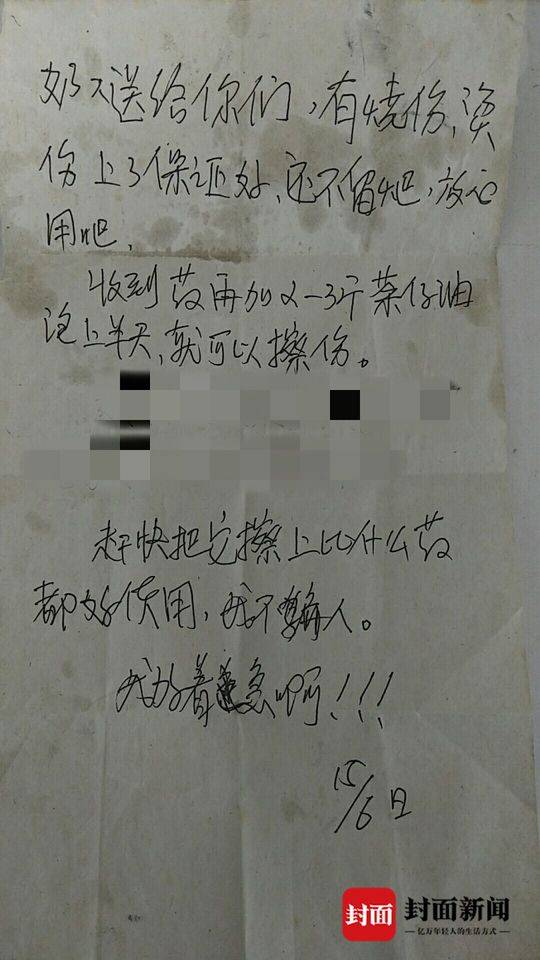 奶々送给你们，有烧伤、烫
伤上了保证好、还不留疤，放心
用吧，
收到药再加2-3斤菜仔油
泡上半天，就可以擦伤。
赶快把它擦上比什么药
都好使用，我不骗人。
我好着急啊！！！
15/6日
封面 封面新闻
亿万年轻人的生活方式